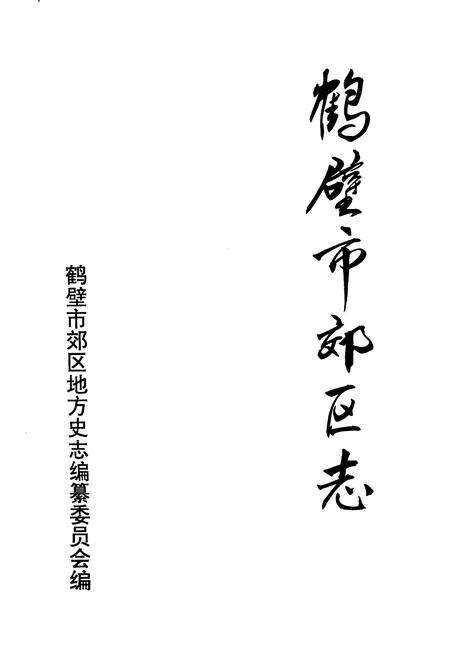 鹤壁市郊区志
鹤壁市郊区地方史志编纂委员会编